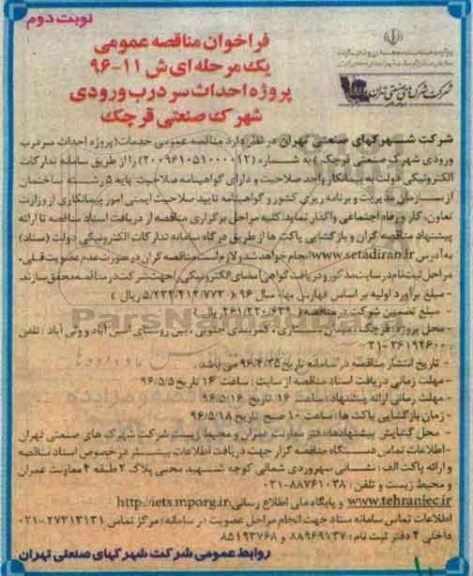 نوبت دوم
فراخوان مناقصه عمومی
یک مرحله ای ش ۱۱-۹۶
پروژه احداث سر درب ورودی
شهرک صنعتی قرچک
شرکت شهرکهای صنعتی تهران در نظر دارد مناقصه عمومی خدمات (پروژه احداث سر درب
ورودی شهرک صنعتی قرچک) به شماره (۲۰۰۹۶۱۰۵۱۰۰۰۰۱۲) را از طریق سامانه تدارکات
الکترونیکی دولت به پیمانکار واحد صلاحیت و دارای گواهینامه صلاحیت پایه ۵ رشته ساختمان
از سازمان مدیریت و برنامه ریزی کشور و گواهینامه تایید صلاحیت ایمنی امور پیمانکاری از وزارت
تعاون، کار و رفاه اجتماعی واگذار نماید. کلیه مراحل برگزاری مناقصه از دریافت اسناد مناقصه تا ارائه
پیشنهاد مناقصه گران و بازگشایی پاکت ها از طریق درگاه سامانه تدارکات الکترونیکی دولت (ستاد)
به آدرس www.setadiran.ir انجام خواهد شد و لازم است مناقصه گران در صورت عدم عضویت قبلی،
مراحل ثبت نام در سایت مذکور و دریافت گواهی امضای الکترونیکی را جهت شرکت در مناقصه محقق سازند.
- مبلغ برآورد اولیه بر اساس فهارس بهاء سال ۹۶ (۵/۲۲۴/۴۱۲/۷۷۲ ریال)
- مبلغ تضمین شرکت در مناقصه (۲۶۱/۲۲۰/۶۳۹ ریال)
- محل پروژه: قرچک، کمربندی جنوبی، بین روستای امین آباد و ولی آباد تلفن:
۳۶۱۹۴۶۰۰-۰۲۱
- تاریخ انتشار مناقصه در سامانه تاریخ ۹۶/۴/۲۵ می باشد.
- مهلت زمانی دریافت اسناد مناقصه از سایت: ساعت ۱۴ تاریخ ۹۶/۵/۵
- مهلت زمانی ارائه پیشنهاد: ساعت ۱۴ تاریخ ۹۶/۵/۱۶
- زمان بازگشایی پاکت ها: ساعت ۱۰ صبح تاریخ ۹۶/۵/۱۸
- محل گشایش پیشنهادها: دفتر معاونت عمران و محیط زیست شرکت شهرک های صنعتی تهران
- اطلاعات تماس دستگاه مناقصه گزار جهت دریافت اطلاعات بیشتر در خصوص اسناد مناقصه
و ارائه پاکت الف: نشانی سهروردی شمالی کوچه شهید محبی پلاک ۲ طبقه ۴ معاونت عمران
و محیط زیست و تلفن: ۸۸۷۶۱۰۳۸-۰۲۱
www.tehraniec.ir و پایگاه ملی اطلاع رسانی http://iets.mporg.ir
اطلاعات تماس سامانه ستاد جهت انجام مراحل عضویت در سامانه: مرکز تماس ۲۷۳۱۳۱۳۱-۰۲۱
داخلی ۴ دفتر ثبت نام: ۸۸۹۶۹۷۳۷ و ۸۵۱۹۳۷۶۸
روابط عمومی شرکت شهرکهای صنعتی تهران